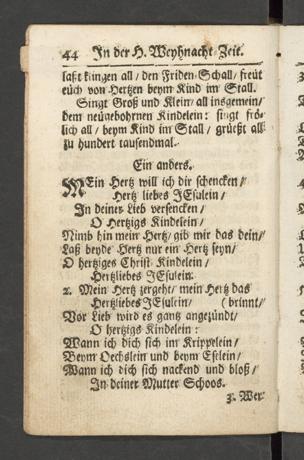 44 In der H. Weyhnacht-Zeit.
laßt klingen all / den Friden-Schall / freüt
eüch von Hertzen beym Kind im Stall.
Singt Groß und Klein / all insgemein /
dem neügebohrnen Kindelein: singt frö-
lich all / beym Kind im Stall / grüßt all
zu hundert tausendmal.
Ein anders.
MEin Hertz will ich dir schencken /
O Hertz liebes JEsulein /
In deiner Lieb versencken /
O hertzigs Kindelein /
Nimb hin mein Hertz / gib mir das dein /
Laß beyde Hertz nur ein Hertz seyn /
O hertziges Christ-Kindelein /
Hertzliebes JEsulein.
2. Mein Hertz zergeht / mein Hertz das
Hertzliebes JEsulein / ( brinnt /
Vor Lieb wird es gantz angezündt /
O hertzigs Kindelein:
Wann ich dich sich im Krippelein /
Beym Oechslein und beym Eselein /
Wann ich dich sich nackend und bloß /
In deiner Mutter Schoos.
3. Wer